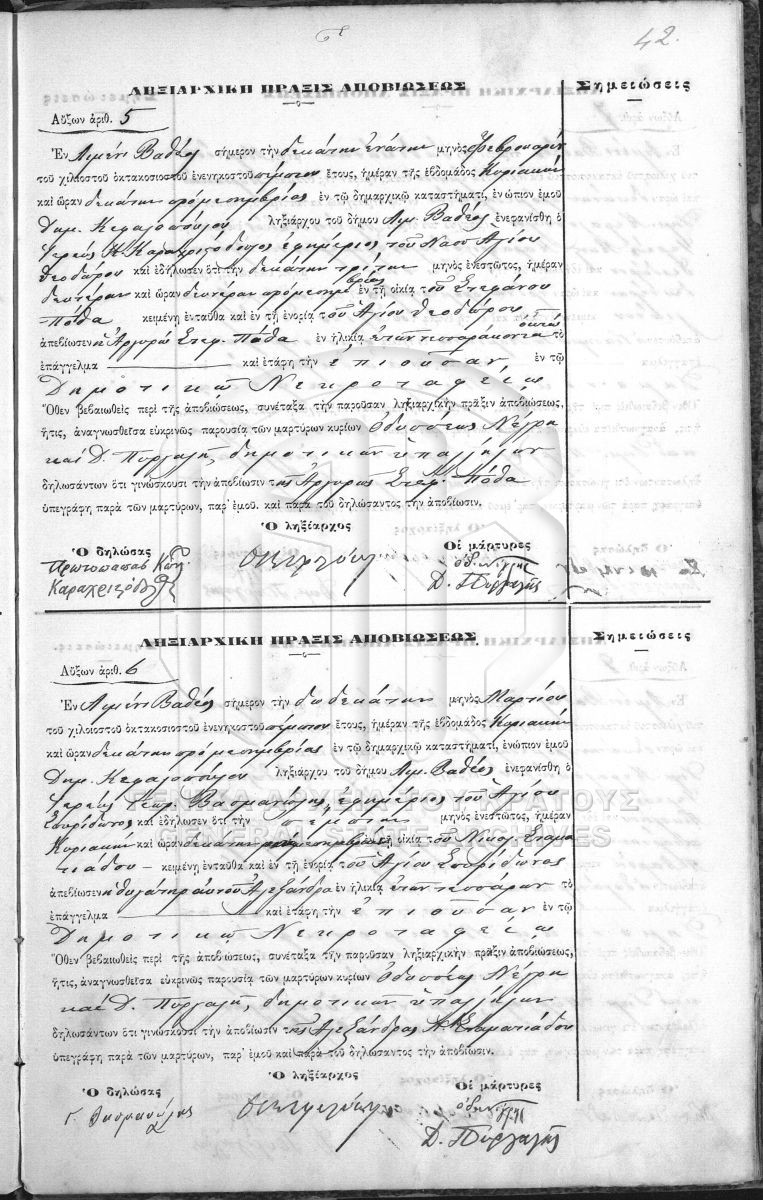 42.
ΛΗΞΙΑΡΧΙΚΗ ΠΡΑΞΙΣ ΑΠΟΒΙΩΣΕΩΣ
Σημειώσεις
Αὔξων ἀριθ. 5
Ἐν Λιμένι Βαθέος σήμερον τὴν δεκάτην ἐνάτην μηνὸς Φεβρουαρίου
τοῦ χιλιοστοῦ ὀκτακοσιοστοῦ ἐνενηκοστοῦ πέμπτου ἔτους, ἡμέραν τῆς ἑβδομάδος Κυριακὴν
καὶ ὥραν δεκάτην πρὸ μεσημβρίας ἐν τῷ δημαρχικῷ καταστήματι, ἐνώπιον ἐμοῦ
Δημ. Κεφαλοπούλου ληξιάρχου τοῦ δήμου Λιμ. Βαθέος ἐνεφανίσθη ὁ
Ἱερεὺς Κ. ἐφημέριος τοῦ Ναοῦ Ἁγίου
Θεοδώρου καὶ ἐδήλωσεν ὅτι τὴν δεκάτην τρίτην μηνὸς ἐνεστῶτος, ἡμέραν
δευτέραν καὶ ὥραν δευτέραν πρὸ μεσημβρίας ἐν τῇ οἰκίᾳ τοῦ Στεφάνου
Πόθα κειμένῃ ἐνταῦθα καὶ ἐν τῇ ἐνορίᾳ τοῦ Ἁγίου Θεοδώρου
ἀπεβίωσεν ἡ Ἀργυρῶ Στεφ. Πόθα ἐν ἡλικίᾳ ἐτῶν τεσσαράκοντα ὀκτὼ τὸ
ἐπάγγελμα καὶ ἐτάφη τὴν ἐπιοῦσαν ἐν τῷ
Δημοτικῷ Νεκροταφείῳ
Ὅθεν βεβαιωθεὶς περὶ τῆς ἀποβιώσεως, συνέταξα τὴν παροῦσαν ληξιαρχικὴν πρᾶξιν ἀποβιώσεως,
ἥτις, ἀναγνωσθεῖσα εὐκρινῶς παρουσίᾳ τῶν μαρτύρων κυρίων Ὀδυσσέως Νέγρη
καὶ Δ. Πυργαλῆ, δημοτικῶν ὑπαλλήλων
δηλωσάντων ὅτι γινώσκουσι τὴν ἀποβίωσιν τῆς Ἀργυρῶς Στεφ. Πόθα
ὑπεγράφη παρὰ τῶν μαρτύρων, παρ' ἐμοῦ. καὶ παρὰ τοῦ δηλώσαντος τὴν ἀποβίωσιν.
Ὁ ληξίαρχος
Ὁ δηλώσας
Οἱ μάρτυρες
Πρωτοπαπᾶς
Δ. Πυργαλῆς
ΛΗΞΙΑΡΧΙΚΗ ΠΡΑΞΙΣ ΑΠΟΒΙΩΣΕΩΣ
Σημειώσεις
Αὔξων ἀριθ. 6
Ἐν Λιμένι Βαθέος σήμερον τὴν δωδεκάτην μηνὸς Μαρτίου
τοῦ χιλιοστοῦ ὀκτακοσιοστοῦ ἐνενηκοστοῦ πέμπτου ἔτους, ἡμέραν τῆς ἑβδομάδος Κυριακὴν
καὶ ὥραν δεκάτην πρὸ μεσημβρίας ἐν τῷ δημαρχικῷ καταστήματι, ἐνώπιον ἐμοῦ
Δημ. Κεφαλοπούλου ληξιάρχου τοῦ δήμου Λιμ. Βαθέος ἐνεφανίσθη ὁ
Ἱερεὺς Γεωρ. ἐφημέριος τοῦ Ἁγίου
Σπυρίδωνος καὶ ἐδήλωσεν ὅτι τὴν πέμπτην μηνὸς ἐνεστῶτος, ἡμέραν
Κυριακὴν καὶ ὥραν δεκάτην πρὸ μεσημβρίας ἐν τῇ οἰκίᾳ τοῦ Νικολ. Σταμα
τιάδου κειμένῃ ἐνταῦθα καὶ ἐν τῇ ἐνορίᾳ τοῦ Ἁγίου Σπυρίδωνος
ἀπεβίωσεν ἡ θυγάτηρ αὐτοῦ Ἀλεξάνδρα ἐν ἡλικίᾳ ἐτῶν τεσσάρων τὸ
ἐπάγγελμα καὶ ἐτάφη τὴν ἐπιοῦσαν ἐν τῷ
Δημοτικῷ Νεκροταφείῳ
Ὅθεν βεβαιωθεὶς περὶ τῆς ἀποβιώσεως, συνέταξα τὴν παροῦσαν ληξιαρχικὴν πρᾶξιν ἀποβιώσεως,
ἥτις, ἀναγνωσθεῖσα εὐκρινῶς παρουσίᾳ τῶν μαρτύρων κυρίων Ὀδυσσέως Νέγρη
καὶ Δ. Πυργαλῆ, δημοτικῶν ὑπαλλήλων
δηλωσάντων ὅτι γινώσκουσι τὴν ἀποβίωσιν τῆς Ἀλεξάνδρας Ν. Σταματιάδου
ὑπεγράφη παρὰ τῶν μαρτύρων, παρ' ἐμοῦ καὶ παρὰ τοῦ δηλώσαντος τὴν ἀποβίωσιν.
Ὁ ληξίαρχος
Ὁ δηλώσας
Οἱ μάρτυρες
Δ. Πυργαλῆς
ΓΕΝΙΚΑ ΑΡΧΕΙΑ ΤΟΥ ΚΡΑΤΟΥΣ
GENERAL STATE ARCHIVES